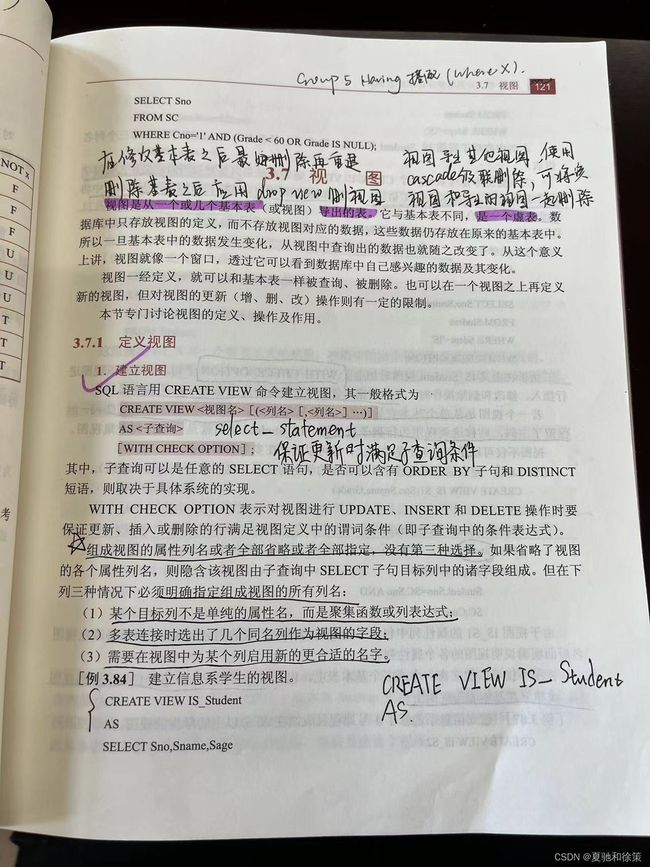 Group 与 Having 搭配 (where X).
3.7 视图 121
SELECT Sno
FROM SC
WHERE Cno='1' AND (Grade < 60 OR Grade IS NULL);
在修改基本表之后最好删除再重建
删除基表之后应用 drop view 删视图
视图导出其他视图,使用
cascade级联删除,可将该
视图和导出的视图一起删除
3.7 视 图
视图是从一个或几个基本表(或视图)导出的表。它与基本表不同,是一个虚表。数
据库中只存放视图的定义,而不存放视图对应的数据,这些数据仍存放在原来的基本表中。
所以一旦基本表中的数据发生变化,从视图中查询出的数据也就随之改变了。从这个意义
上讲,视图就像一个窗口,透过它可以看到数据库中自己感兴趣的数据及其变化。
视图一经定义,就可以和基本表一样被查询、被删除。也可以在一个视图之上再定义
新的视图,但对视图的更新(增、删、改)操作则有一定的限制。
本节专门讨论视图的定义、操作及作用。
3.7.1 定义视图
1. 建立视图
SQL 语言用 CREATE VIEW 命令建立视图,其一般格式为
CREATE VIEW <视图名> [(<列名> [,<列名>]…)]
AS <子查询> select_statement
[WITH CHECK OPTION]; 保证更新时满足子查询条件
其中,子查询可以是任意的 SELECT 语句,是否可以含有 ORDER BY 子句和 DISTINCT
短语,则取决于具体系统的实现。
WITH CHECK OPTION 表示对视图进行 UPDATE、INSERT 和 DELETE 操作时要
保证更新、插入或删除的行满足视图定义中的谓词条件(即子查询中的条件表达式)。
组成视图的属性列名或者全部省略或者全部指定,没有第三种选择。如果省略了视图
的各个属性列名,则隐含该视图由子查询中 SELECT 子句目标列中的诸字段组成。但在下
列三种情况下必须明确指定组成视图的所有列名:
(1)某个目标列不是单纯的属性名,而是聚集函数或列表达式;
(2)多表连接时选出了几个同名列作为视图的字段;
(3)需要在视图中为某个列启用新的更合适的名字。
[例 3.84] 建立信息系学生的视图。
CREATE VIEW IS_Student
AS
SELECT Sno,Sname,Sage
CREATE VIEW IS_Student
AS.
NOT x
F
F
F
U
U
U
T
T
T
考
CSDN @夏驰和徐策